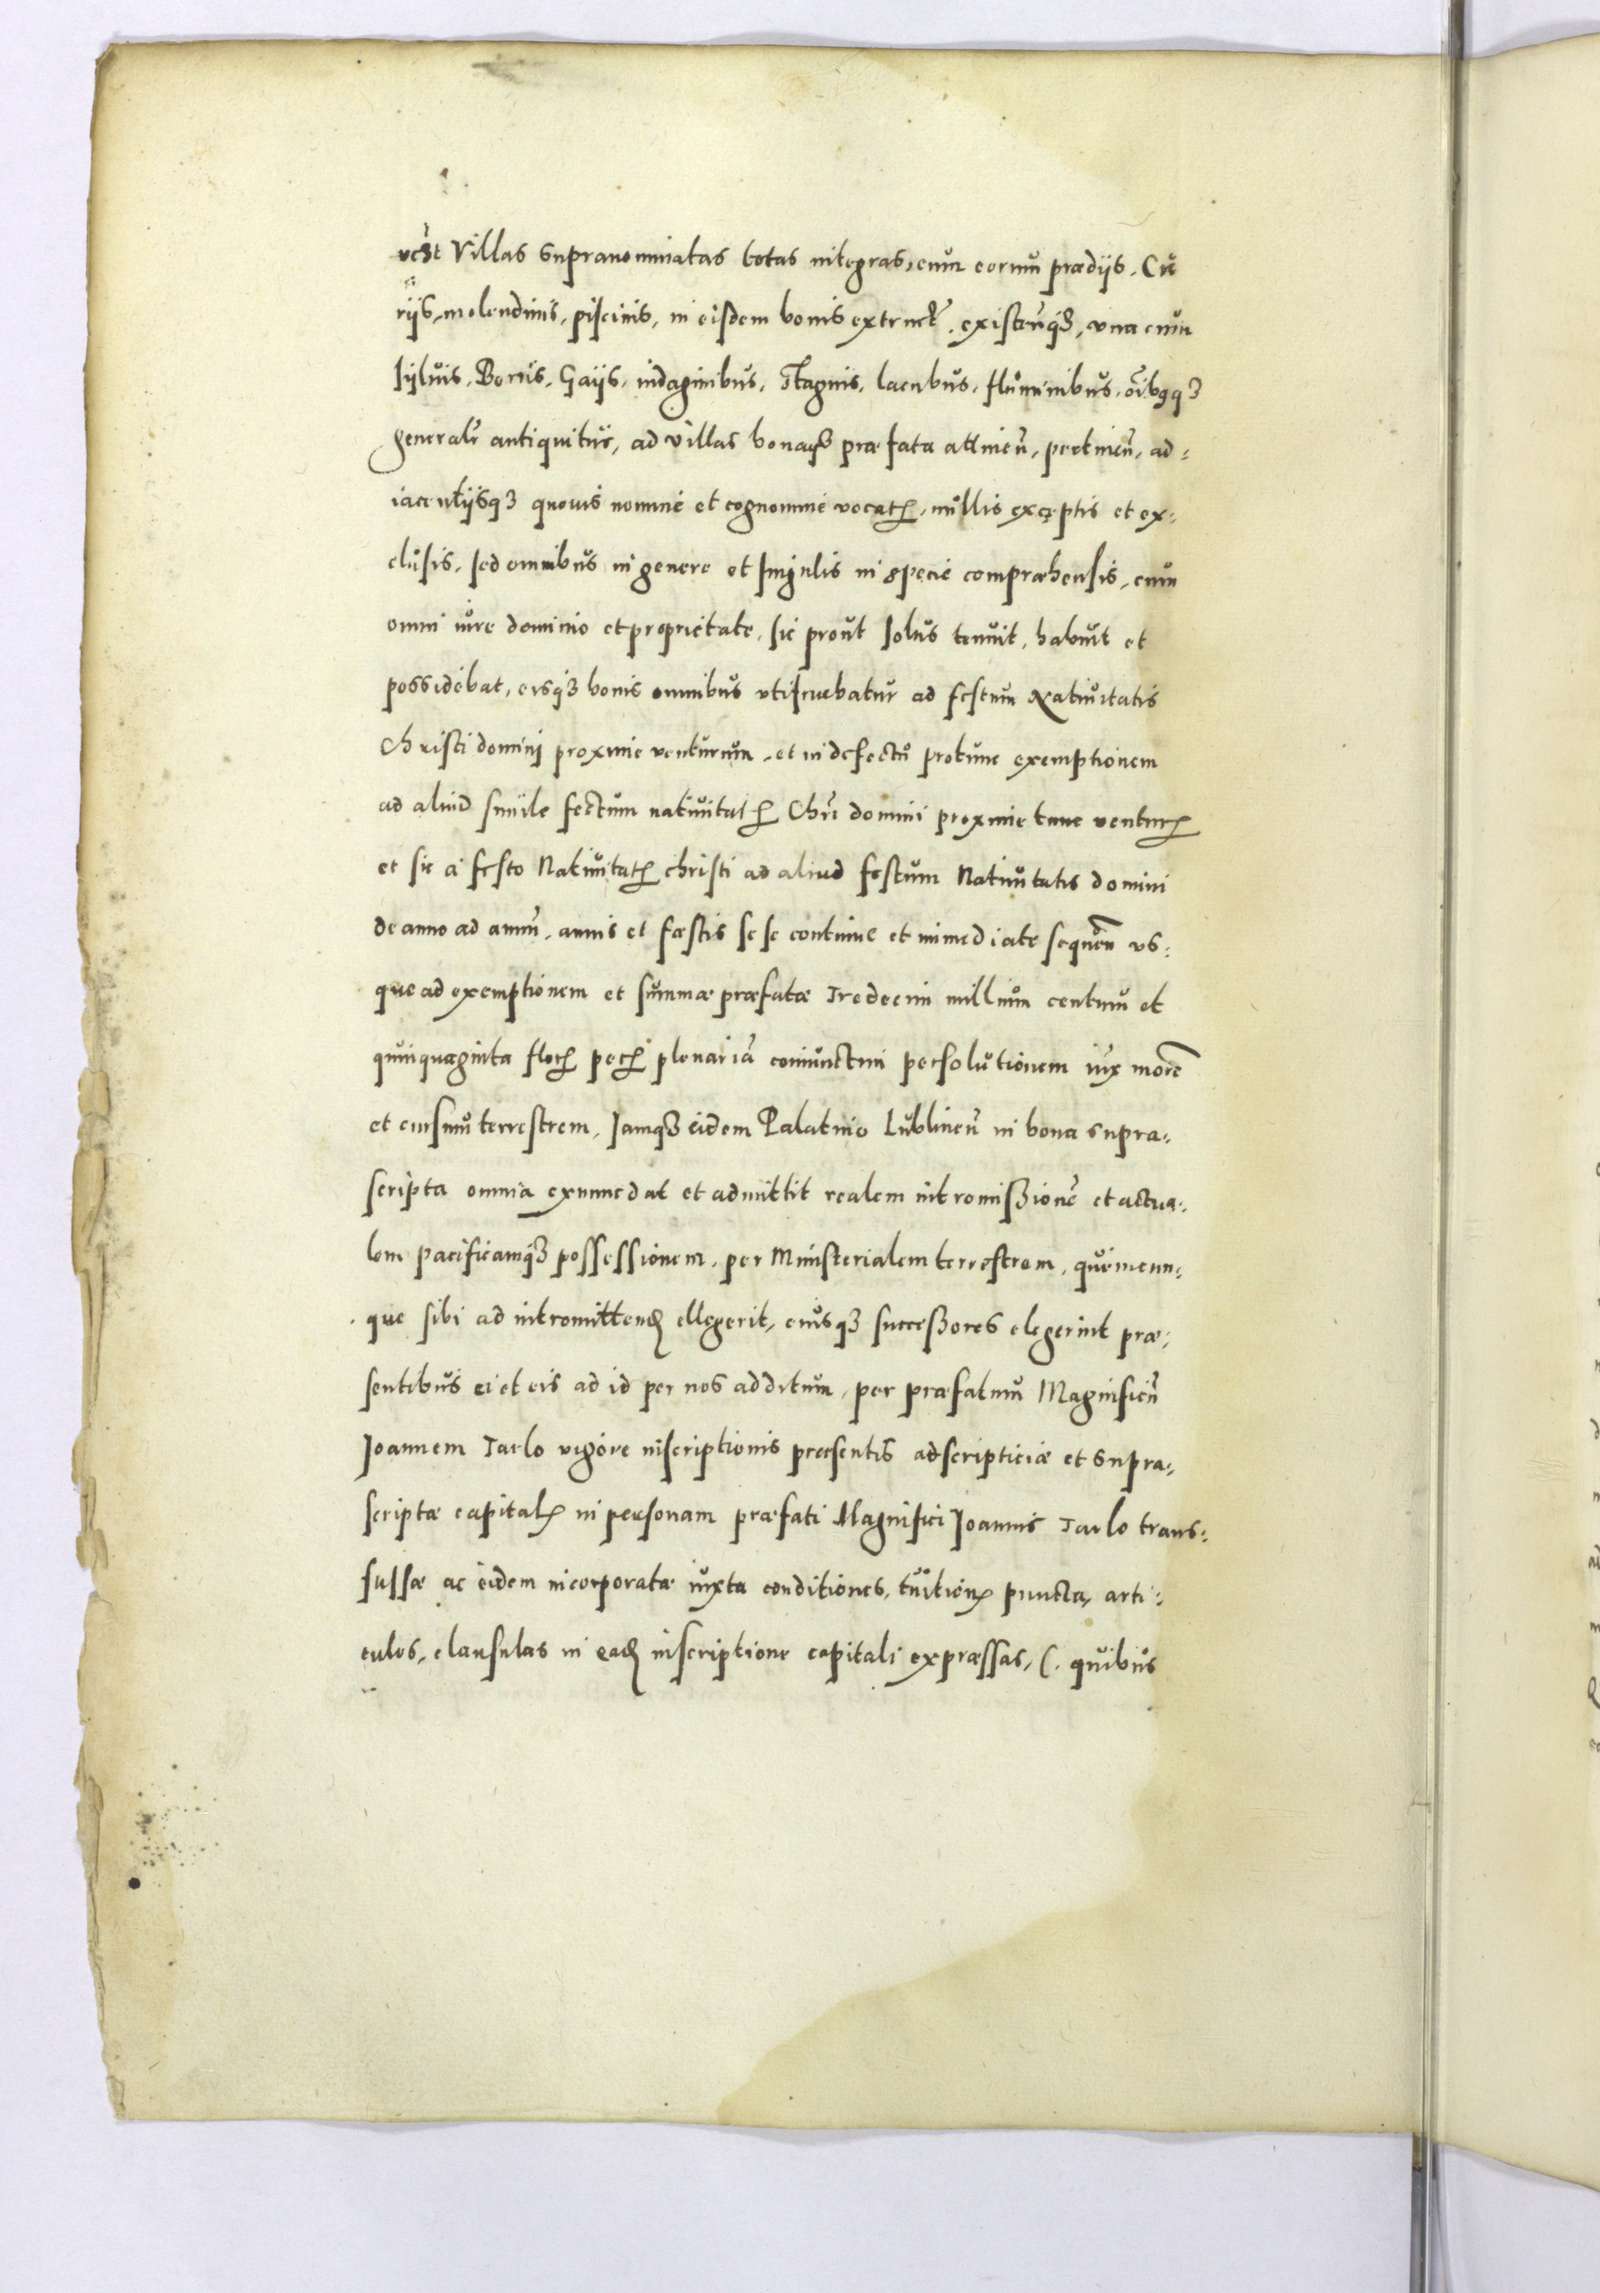 vcżt Villas supranominatas totas integras, cum eorum prædijs, Cu
rijs, molendinis, piscinis, in eisdem bonis extruct̃, existeñq3, vna cum
syluis, Borris, Gaijs, indaginibus, Stagnis, lacubus, fluminibus, oĩbq3
generalr̃ antiquitus, ad villas bonaq3 præfata attineñ, pertineñ, ad-
iacentijsq3 quouis nomine et cognomine vocat̃, nullis exceptis et ex-
clusis, sed omnibus in genere et singulis in specie compræhensis, cum
omni iure dominio et proprietate, sic prout solus tenuit, habuit et
possidebat, eisq3 bonis omnibus vtifruebatur ad festum Natiuitatis
Christi domini proxime venturum, et in defectu protunc exemptionem
ad aliud simile festum natiuitat̃ Chrĩ domini proxime tunc ventur̃
et sic a festo Natiuitat̃ christi ad aliud festum Natiuitatis domini
de anno ad annũ, annis et fæstis se se continue et immediate sequeñ vs-
que ad exemptionem et summæ præfatæ Tredecim millium centum et
quinquaginta flor̃ pec̃ plenariã coniunctim persolutionem iux̃ morẽ
et cursum terrestrem, Iamq3 eidem Palatino Lublineñ in bona supra-
scripta omnia exnunc dat et admittit realem intromißionẽ et actua-
lem pacificamq3 possessionem, per Ministerialem terrestrem, quemcun-
que sibi ad intromittend̃ ellegerit, eiusq3 succeßores elegerint præ-
sentibus ei et eis ad id per nos additum, per præfatum Magnificũ
Ioannem Tarlo vigore inscriptionis præsentis adscripticiæ et supra-
scriptæ capital̃ in personam præfati Magnifici Ioannis Tarlo trans-
fussæ ac eidem incorporatæ iuxta conditiones, tuitioñ puncta, arti-
culos, clausulas in ead̃ inscriptione capitali expræssas, (. quibus